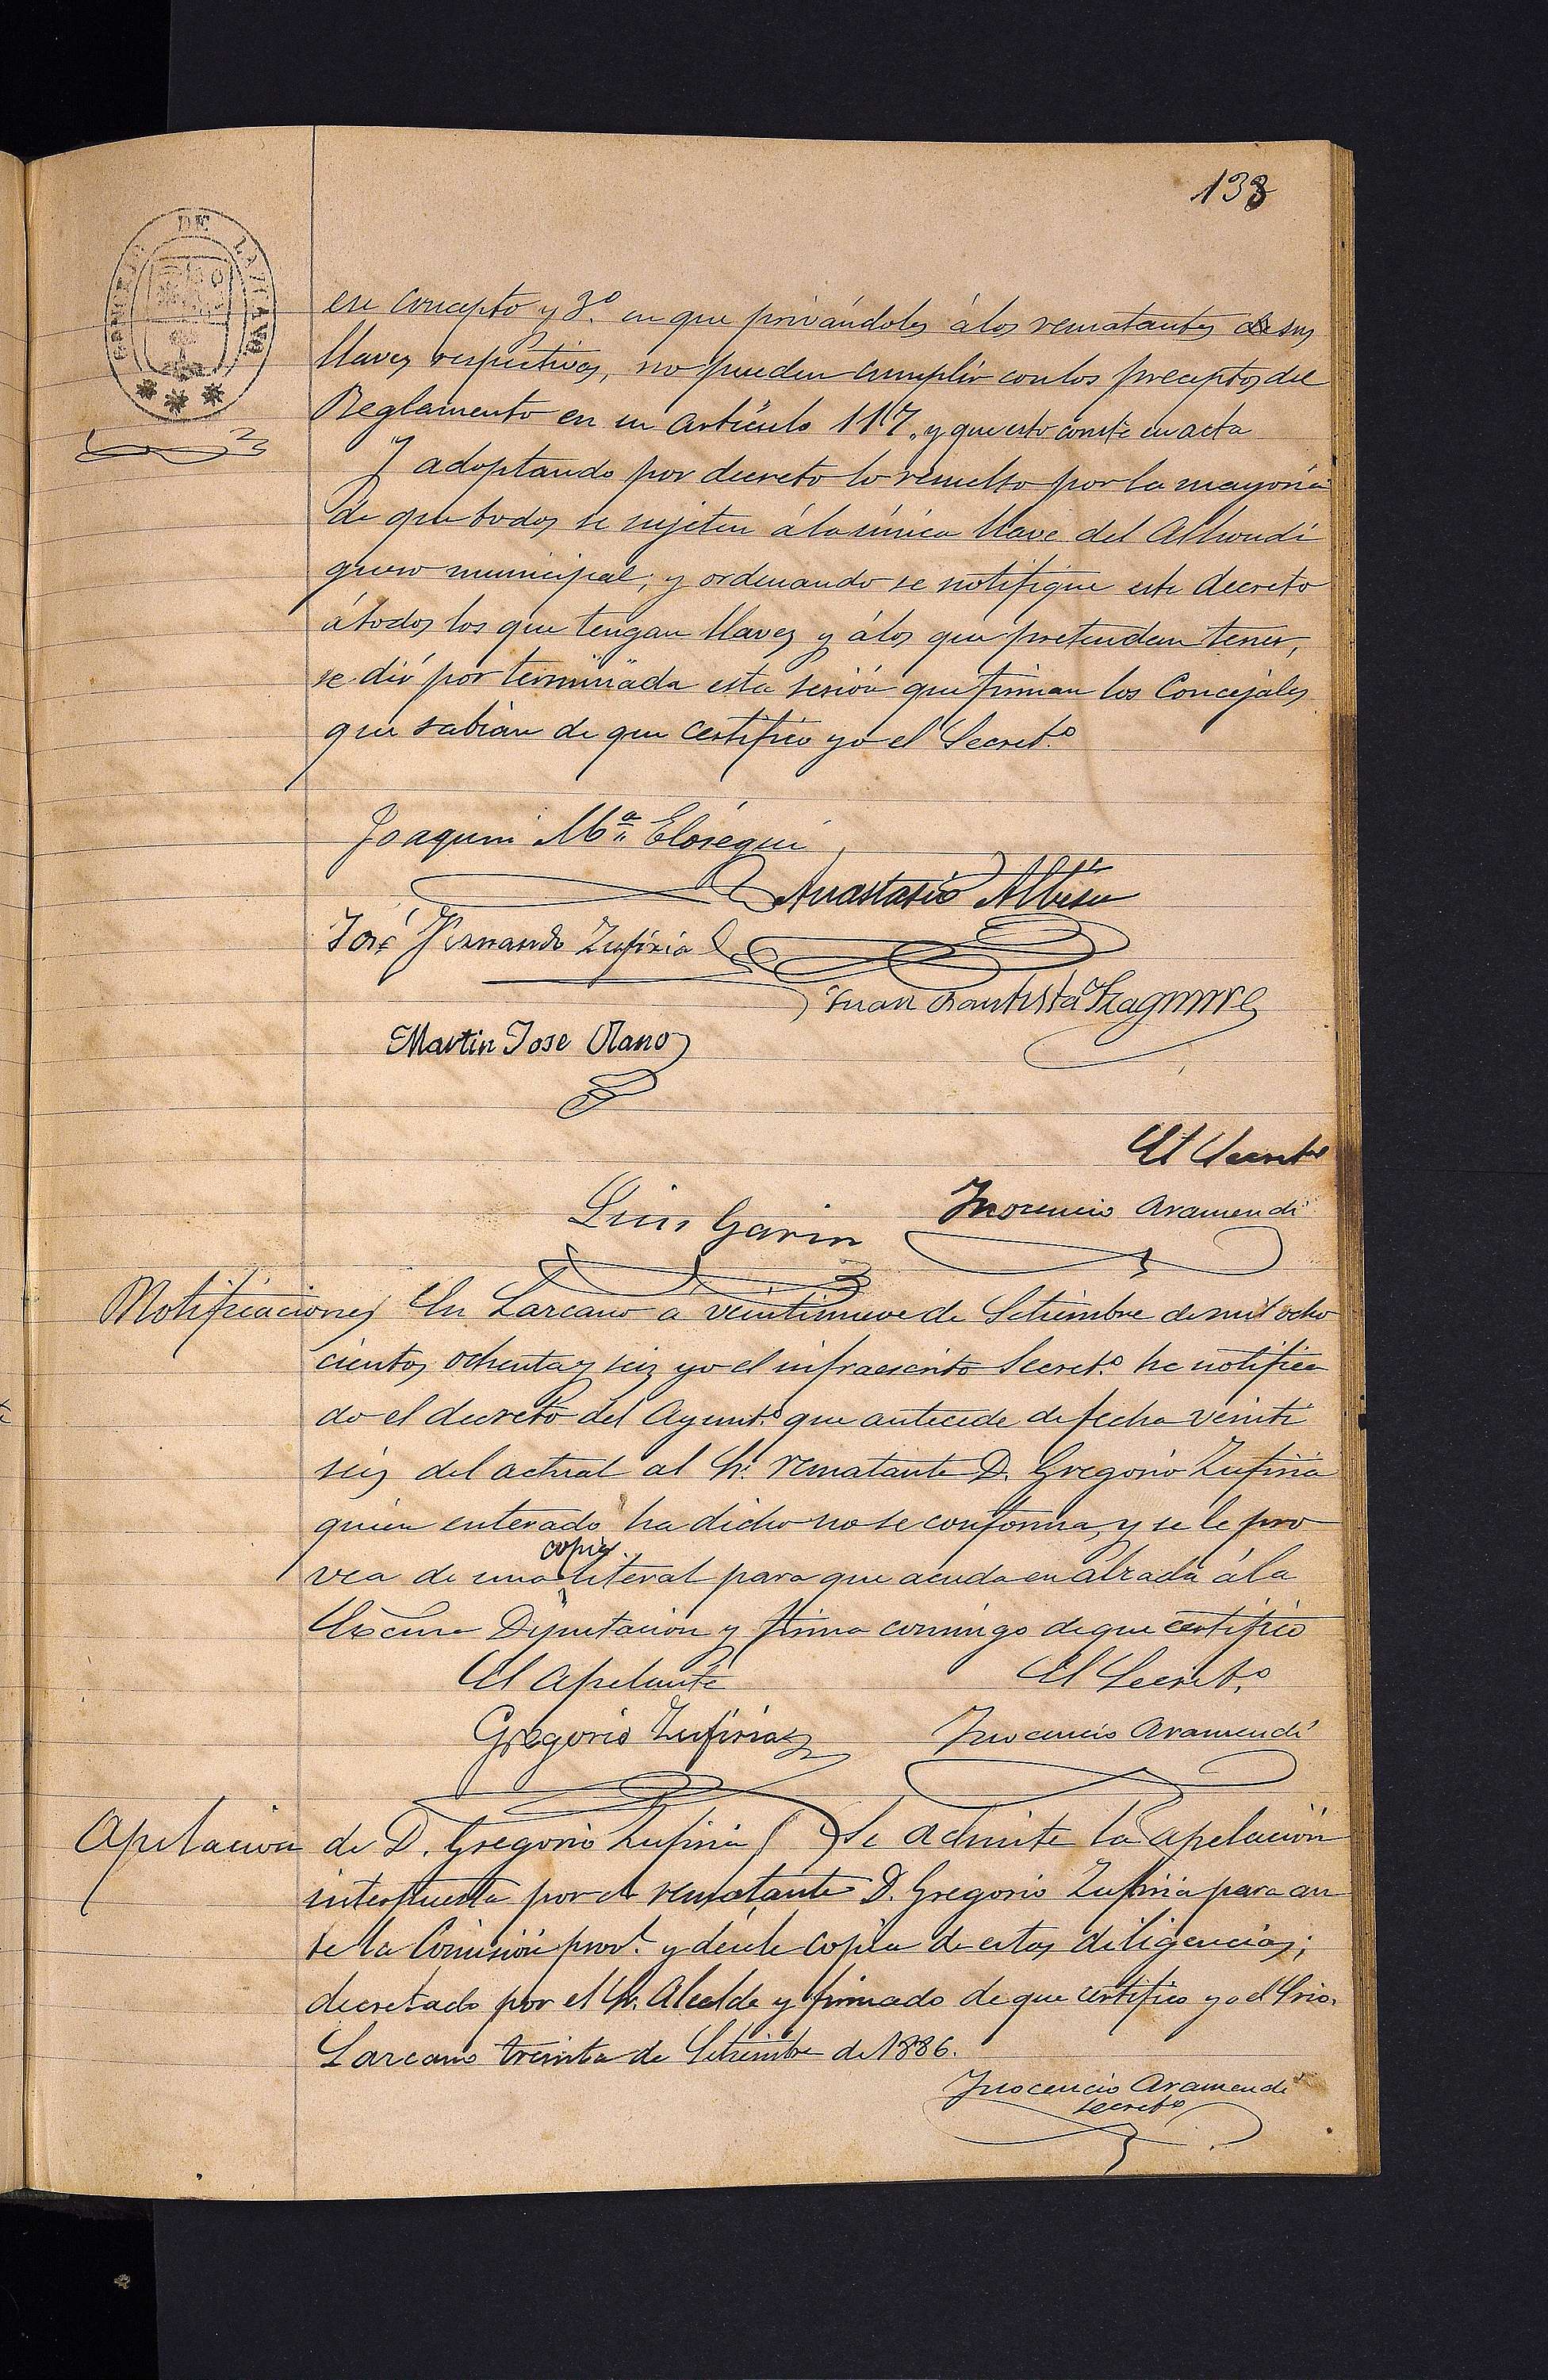 133
ese concepto y 3.º en que privándoles á los rematantes de sus
llaves respectivas, no pueden cumplir con los preceptos del
Reglamento en su artículo 117. y que esto conste en acta
Y adoptando por decreto lo resuelto por la mayoría
de que todos se sujeten á la única llave del Alhondi
guero municipal; y ordenando se notifique este decreto
á todos los que tengan llaves y á los que pretendan tener,
se dió por terminada esta sesión que firman los Concejales
que sabian de que certifico yo el Secret.º
Joaquin M.ª Elósegui
Anastasio Albisu
José Fernando Zufiria
Juan Bautista Yzaguirre
Martin Jose Olano
El Secret.º
Luis Garin Inocencio Aramendi
Notificaciones En Lazcano á veintinueve de Setiembre de mil ocho
cientos ochenta y seis yo el infraescrito Secret.º he notifica
do el decreto del Ayunt.º que antecede de fecha veinti
seis del actual al Sr. rematante D. Gregorio Zufiria
quien enterado ha dicho no se conforma, y se le pro
vea de una copia literal para que acuda en alzada á la
Excma Diputacion y firma conmigo de que certifico
El Apelante El Secret.º
Gregorio Zufiria Inocencio Aramendi
Apelacion de D. Gregorio Zufiria Se admite la apelación
interpuesta por el rematante D. Gregorio Zufiria para an
te la Comisión prov.l y désele copia de estas diligencias;
decretado por el Sr. Alcalde y firmado de que certifico yo el Srio.
Lazcano treinta de Setiembre de 1886.
Inocencio Aramendi
secret.º